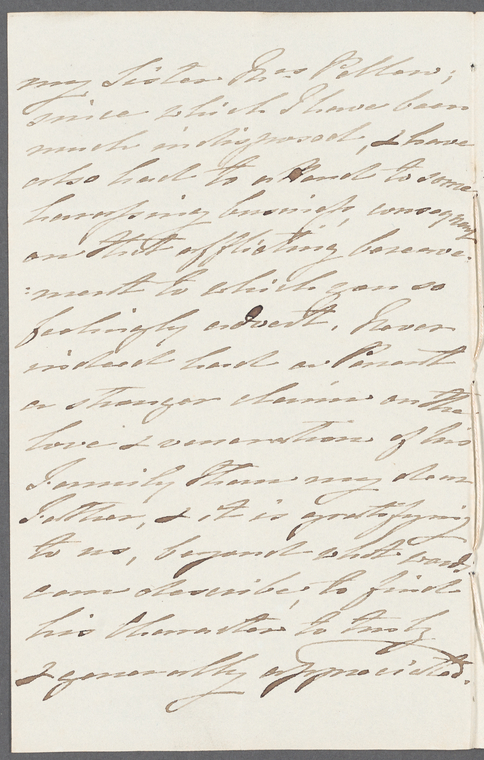 my Sister Mrs Pellew;
since which I have been
much indisposed, & have
also had to attend to some
harassing business, consequent
on that afflicting bereave:
:ment to which you so
feelingly advert. Never
indeed had a Parent
a stronger claim on the
love & veneration of his
Family than my dear
Father, & it is gratifying
to us, beyond what words
can describe, to find
his Character so truly
& generally appreciated.